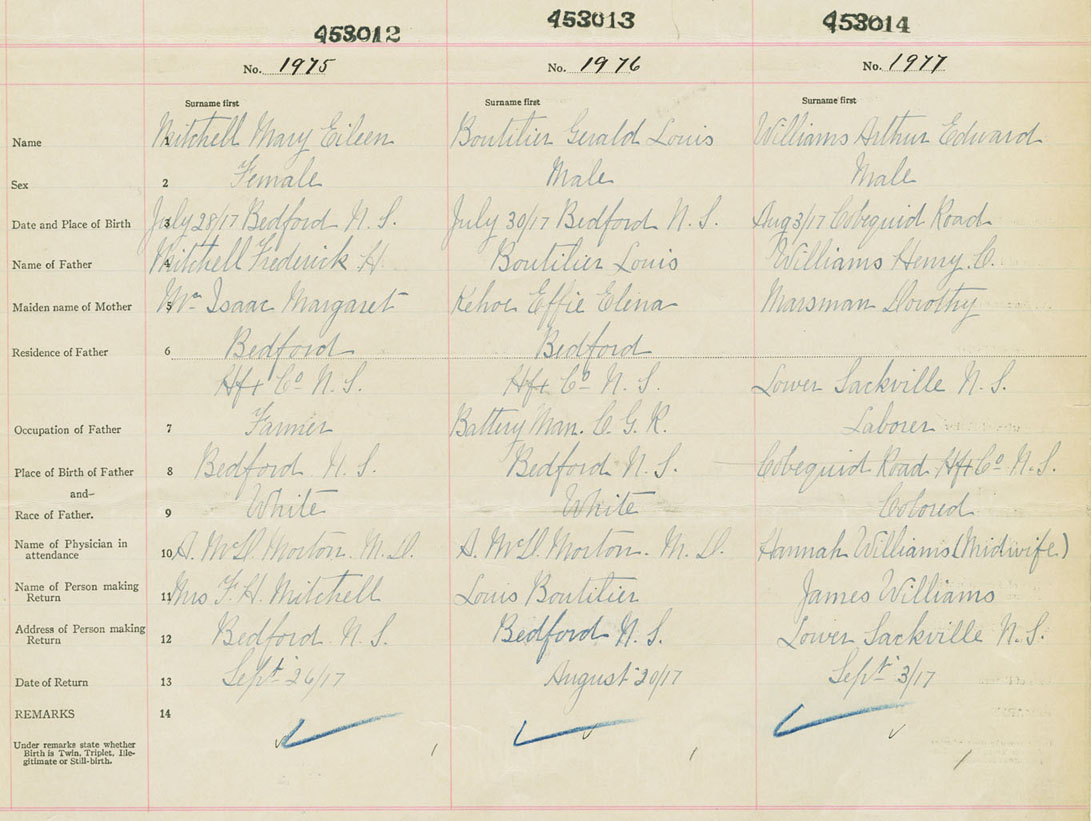 453012 453013 453014
No. 1975 No. 1976 No. 1977
Surname first Surname first Surname first
Name 1 Mitchell Mary Eileen Boutilier Gerald Louis Williams Arthur Edward
Sex 2 Female Male Male
Date and Place of Birth 3 July 28/17 Bedford N. S. July 30/17 Bedford N. S. Aug 3/17 Cobequid Road
Name of Father 4 Mitchell Frederick H. Boutilier Louis Williams Henry. C.
Maiden name of Mother 5 Mc Isaac Margaret Kehoe Effie Elena Marsman Dorothy
Residence of Father 6 Bedford Bedford
Hfx Co N. S. Hfx Co N. S. Lower Sackville N. S.
Occupation of Father 7 Farmer Battery Man. C. G. R. Laborer
Place of Birth of Father 8 Bedford N. S. Bedford N. S. Cobequid Road Hfx Co N. S.
—and—
Race of Father. 9 White White Colored
Name of Physician in
attendance 10 A. McD. Morton. M. D. A. McD. Morton. M. D. Hannah Williams (Midwife)
Name of Person making
Return 11 Mrs F. H. Mitchell Louis Boutilier James Williams
Address of Person making
Return 12 Bedford N. S. Bedford N. S. Lower Sackville N. S.
Date of Return 13 Sept 26/17 August 20/17 Sept 3/17
REMARKS 14
Under remarks state whether
Birth is Twin, Triplet, Ille-
gitimate or Still-birth.